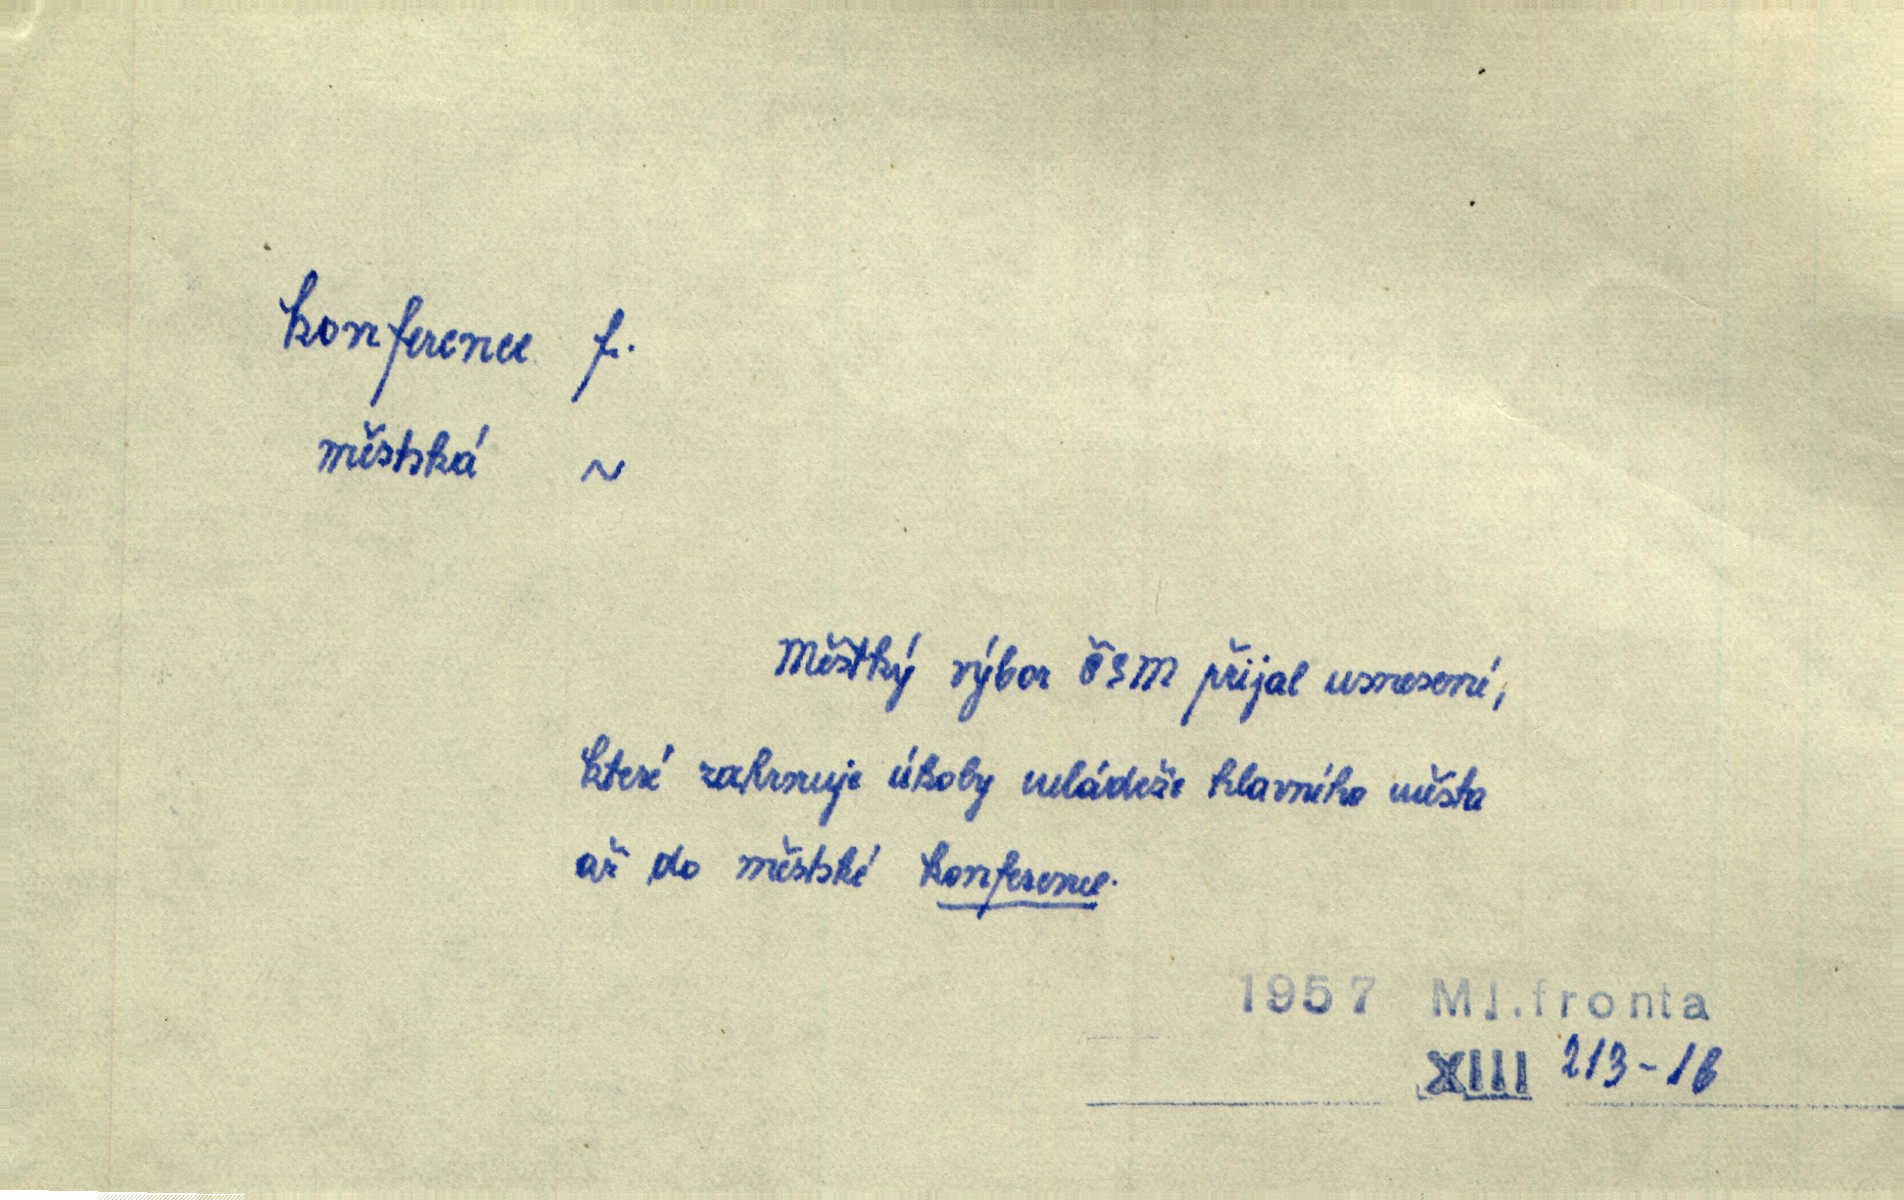 konference f.
městská ~
Městký výbor ČSM přijal usnesení,
které zahrnuje úkoly mládeže hlavního města
až do městské konference.
1957 Ml.fronta
XIII 213-1б